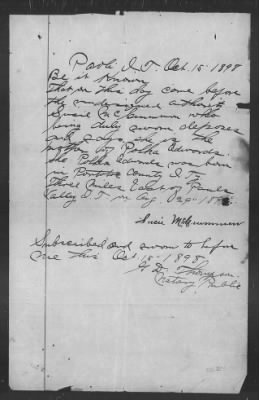 Paoli I.T. Oct 15 - 1898
Be it Known
That on this day came before
the undersigned authority
Susie McGunnium who
being duly sworn deposes
and says she is the
mother of Polka Edwards.
She Polka Edwards was born
in Pontotoc County I.T.
Three Miles East of Pauls
Valley I.T. in Aug
Susie McGunnium
Subscribed and sworn to before
me this Oct 15 - 1898
Thompson
Notary Public